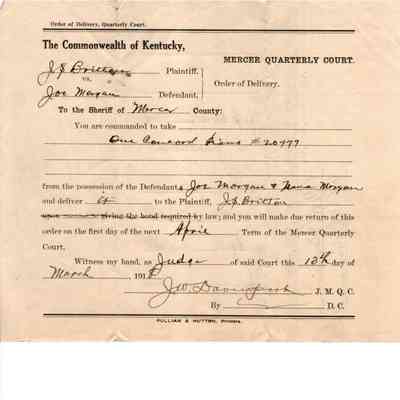 Order of Delivery, Quarterly Court.
The Commonwealth of Kentucky,
MERCER QUARTERLY COURT.
J S Britton Plaintiff,
vs.
Order of Delivery.
Joe Morgan Defendant,
To the Sheriff of Mercer County:
You are commanded to take
One Concord Piano # 20477
from the possession of the Defendants Joe Morgan & Morgan
and deliver it to the Plaintiff, J S Britton
upon giving the bond required by law; and you will make due return of this
order on the first day of the next April Term of the Mercer Quarterly
Court.
Witness my hand, as Judge of said Court this 13th day of
March 1918
J. M. Q. C.
By D. C.
PULLIAM & HUTTON, PRINTERS.